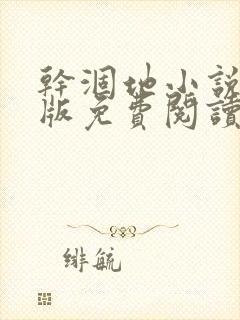 幹涸地小說
版免費閱讀
緋毓